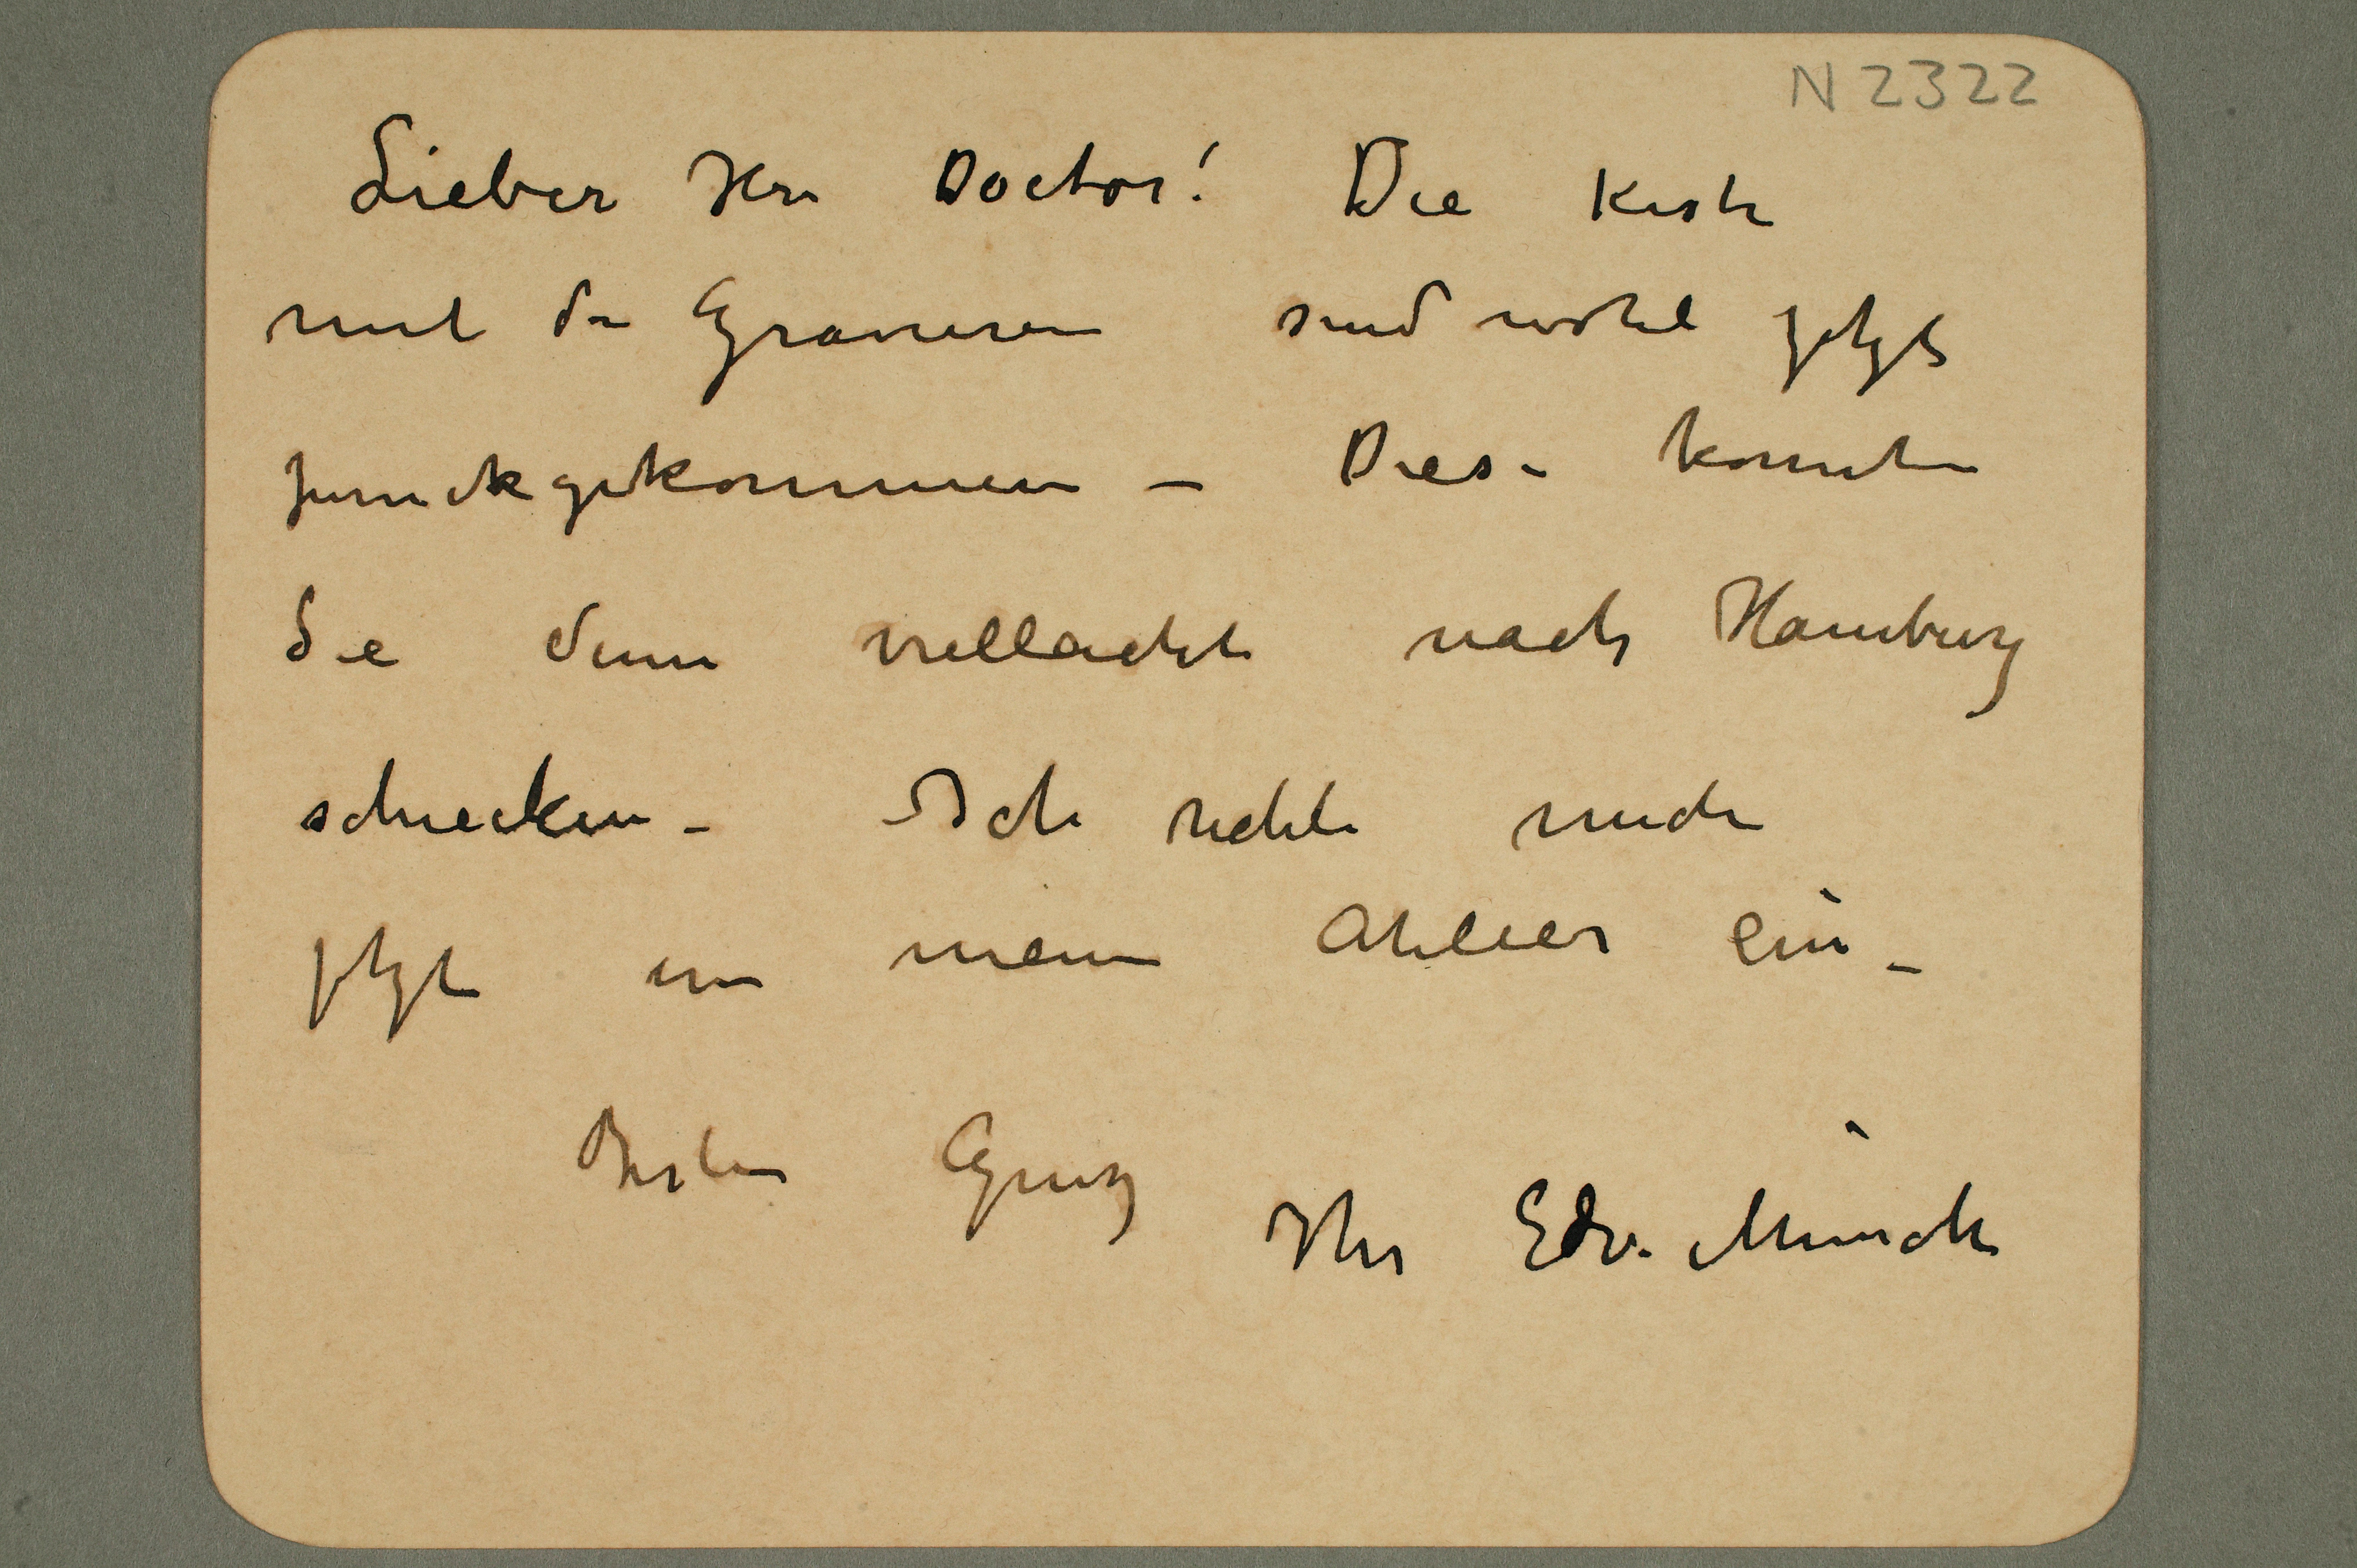 N 2322
Lieber Herr Doctor! Die Kiste
mit den Gravuren sind wohl jetzt
zurückgekommen – Diese konnten
Sie denn viellacht nach Hamburg
schiecken – Ich richte mich
jetzt in meinem Atelier ein –
Besten Grusz
Ihr Edv. Munch